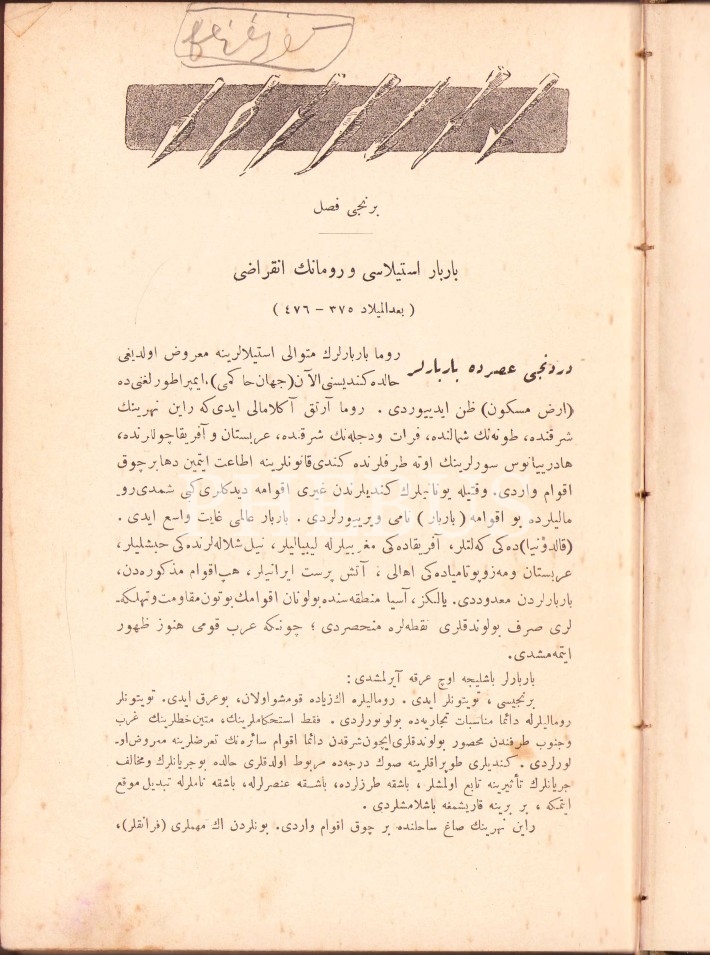 برنجی فصل
باربار استیلاسی و رومانك انقراضی
( بعدالمیلاد ٣٧٥ – ٤٧٦ )
دردنجی عصرده باربارلر
روما باربارلرك متوالی استیلالرینه معروض اولدیغی
حالده کندیسنی الآن (جهان حاکمی)، ایمپراطورلغنی ده
(ارض مسکون) ظن ایدییوردی . روما آرتق آکلامالی ایدی که راین نهرینك
شرقنده، طونه‌نك شمالنده، فرات ودجله‌نك شرقنده، عربستان و آفریقا چوللرنده،
هادریيانوس سورلرینك اوته طرفلرنده کندی قانونلرینه اطاعت ایتمین دها برچوق
اقوام واردی. وقتیله یونانیلرك کندیلرندن غیری اقوامه دیدکلری کبی شمدی رو-
مالیلرده بو اقوامه (باربار) نامی ویرییورلردی . باربار عالمی غایت واسع ایدی .
(قالدونیا)ده کی کلتلر، آفریقاده کی مغربیلرله لیبیالیلر، نیل شلاله‌لرنده کی حبشلیلر،
عربستان ومه‌زوپوتامیاده کی اهالی ، آتش پرست ایرانیلر، هپ اقوام مذکوره‌دن،
باربارلردن معدوددی. یالکز، آسیا منطقه‌سنده بولونان اقوامك بوتون مقاومت وتهلکه-
لری صرف بولوندقلری نقطه‌لره منحصردی ؛ چونکه عرب قومی هنوز ظهور
ایتمه‌مشدی.
باربارلر باشلیجه اوچ عرقه آیرلمشدی :
برنجیسی ، تویتونلر ایدی . رومالیلره اك زیاده قومشو اولان، بو عرق ایدی. تویتونلر
رومالیلرله دائما مناسبات تجاریه‌ده بولونورلردی . فقط استحکاملرینك، متین خطلرینك غرب
وجنوب طرفندن محصور بولوندقلری ایچون شرقدن دائما اقوام سائره‌نك تعرضلرینه معروض او-
لورلردی . کندیلری طوپراقلرینه صوك درجه‌ده مربوط اولدقلری حالده بو جریانلرك ومخالف
جریانلرك تأثیرینه تابع اولمشلر ، باشقه طرزلرده، باشقه عنصرلرله، باشقه ناملرله تبدیل موقع
ایتمکه ، بر برینه قاریشمغه باشلامشلردی .
راین نهرینك صاغ ساحلنده بر چوق اقوام واردی. بونلردن اك مهملری (فرانقلر)،